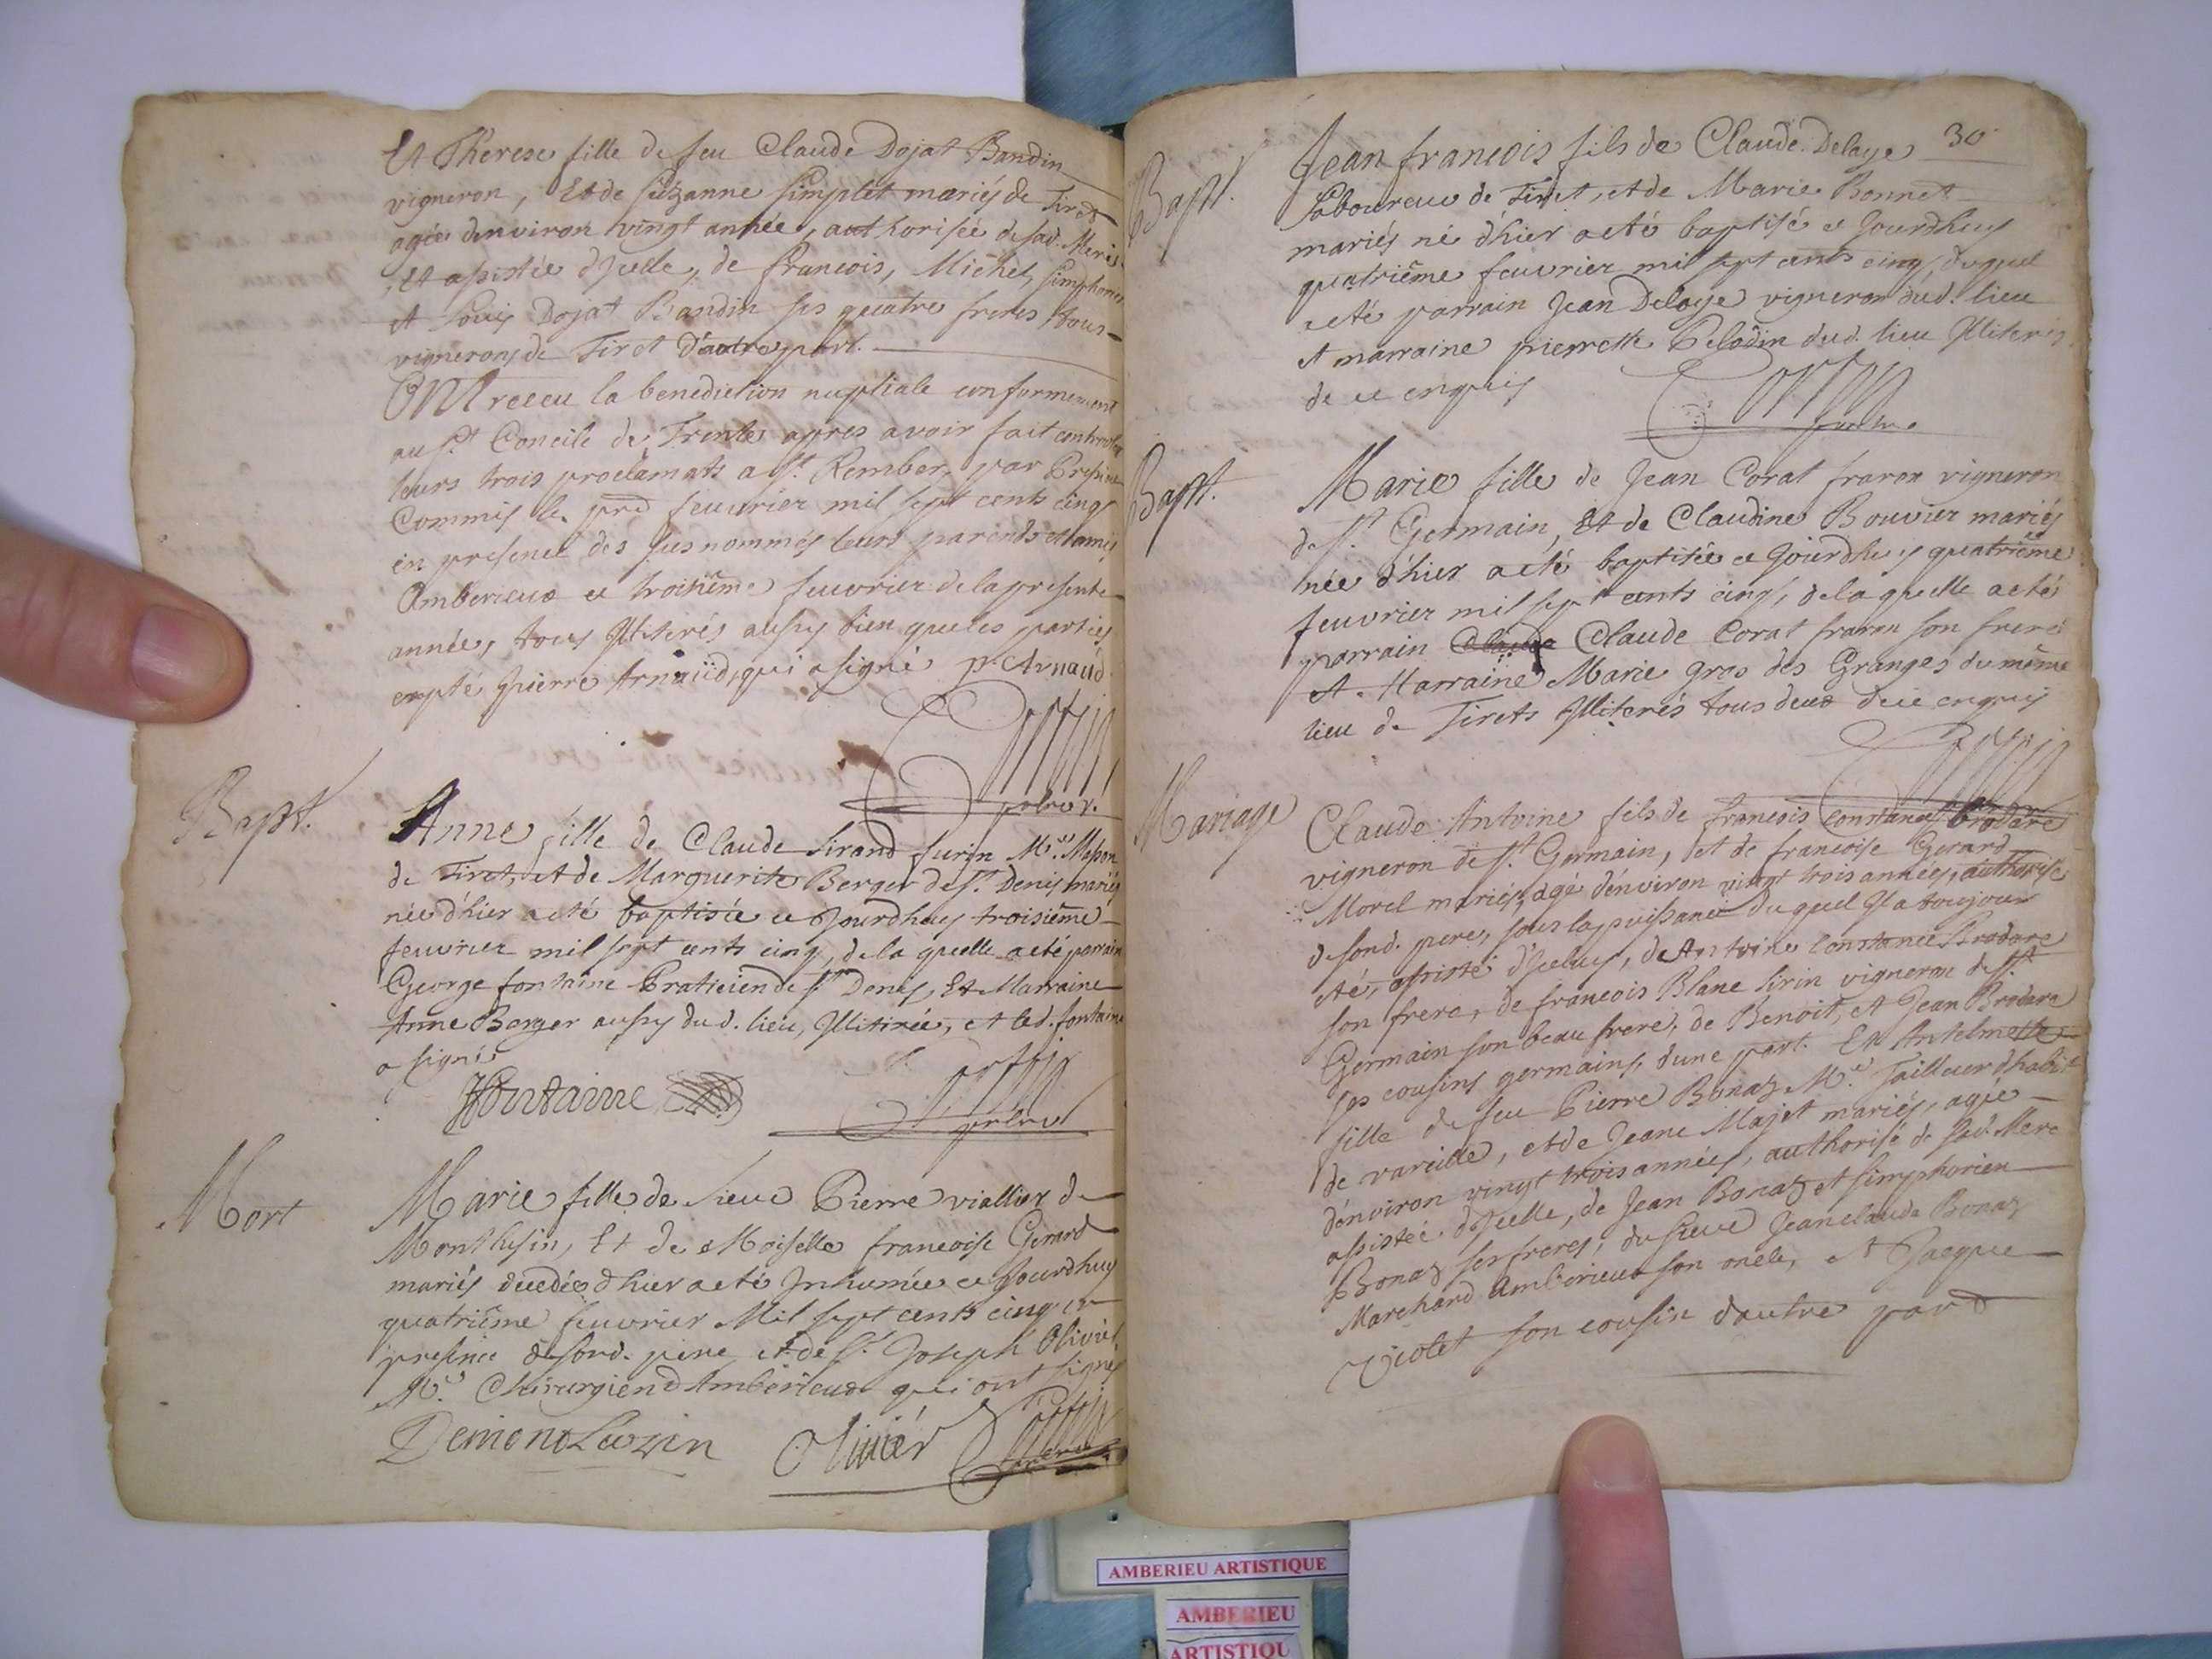 Et Therese fille de feu Claude Dojat Bandin
vigneron, Et de Suzanne Simplet mariés de Tiret
agée denviron vingt année, authorisée de sad. Mere
, et assistée d'Jcelle, de francois, Michel, Simphorien
et Louis Dojat Bandin ses quatre freres tous
vignerons de Tiret d'autre part.
ONt receu la benediction nuptiale conformement
au St. Concile de Trente, apres avoir fait controller
leurs trois proclamats a St. Rember, par
Commis le prd feuvrier mil sept cents cinq
en presence des susnommés leurs parends et amis
Amberieux ce troisiême feuvrier de la presente
année, tous Jlliterés aussy bien que les parties
excepté pierre Arnaüd, qui a signé p. Arnaud
prbre v.
Bapt.
Anne fille de Claude Sirand furin Mre. Masson
de Tiret, et de Marguerite Berger de St. Denis mariés
née d'hier a eté baptisée ce Jourdhuy troisiême
feuvrier mil sept cents cinq, de la quelle a eté parrain
George fontaine Praticien de St Denis, Et Marraine
Anne Berger aussy dud. lieu, Jllitirée, et led. fontaine
a signé
ffontaine
prbre v
Mort
Marie fille de Sieur Pierre viallier de
Monthusin, Et de dMoiselle francoise Gerard
mariés decedée d'hier a eté Jnhumée ce Jourdhuy
quatriême feuvrier Mil sept cents cinq en
presence de sond. pere, et de Sr. Joseph Olivier
Mre. Chirurgien d'Amberieux qui ont signés
Demont Luzin Olivier
prbre v
30
Bapt.
Jean francois fils de Claude Delaye
Laboureur de Tiret, et de Marie Bonnet
mariés né d'hier a eté baptisé ce Jourdhuy
quatriême feuvrier mil sept cents cinq, duquel
a eté parrain Jean Delaye vigneron dud. lieu
et marraine pierrette Beladin dud. lieu Jlliterés
de ce enquis
prbre v.
Bapt.
Marie fille de Jean Corat fraron vigneron
de St. Germain, Et de Claudine Bouvier mariés
née d'hier a eté baptisée ce Jourdhuy quatriême
feuvrier mil sept cents cinq, de la quelle a eté
parrain Claude Claude Corat fraron son frere
et Marraine Marie Gros des Granges du même
lieu de Tirets Jlliterés tous deux de ce enquis
Mariage
Claude Antoine fils de francois Constance Brodare
vigneron de St. Germain, et de francoise Gerard
Morel mariés, agé d'environ vingt trois années, authorisé
de sond. pere, sous la puissance du quel Jl a toujours
eté, assisté d'Jceluy, de Antoine Constance Brodare
son frere, de francois Blanc Sirin vigneron de St.
Germain son beau frere, de Benoit, et Jean Brodare
ses cousins germains, dune part. Et Antelmette
fille de feu Pierre Bonaz Mre. Tailleur dhabit
de vareille, et de Jeane Majet mariés, agée
d'environ vingt trois années, authorisé de sad. Mere
assistée d'Jcelle, de Jean Bonaz et Simphorien
Bonaz ses freres, du sieur Jeanclaude Bonaz
Marchand Amberieux son oncle, et Jacque
Violet son cousin d'autre part
AMBERIEU ARTISTIQUE
AMBERIEU
ARTISTIQU